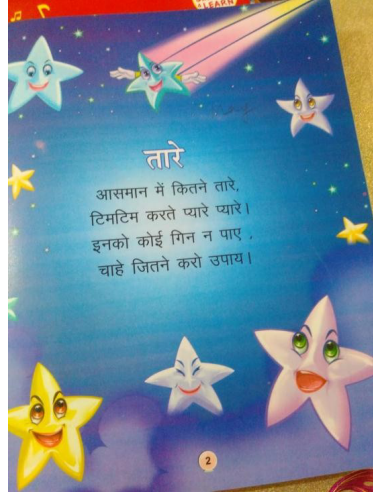 LEARN
तारे
आसमान में कितने तारे,
टिमटिम करते प्यारे प्यारे।
इनको कोई गिन न पाए ,
चाहे जितने करो उपाय।
2